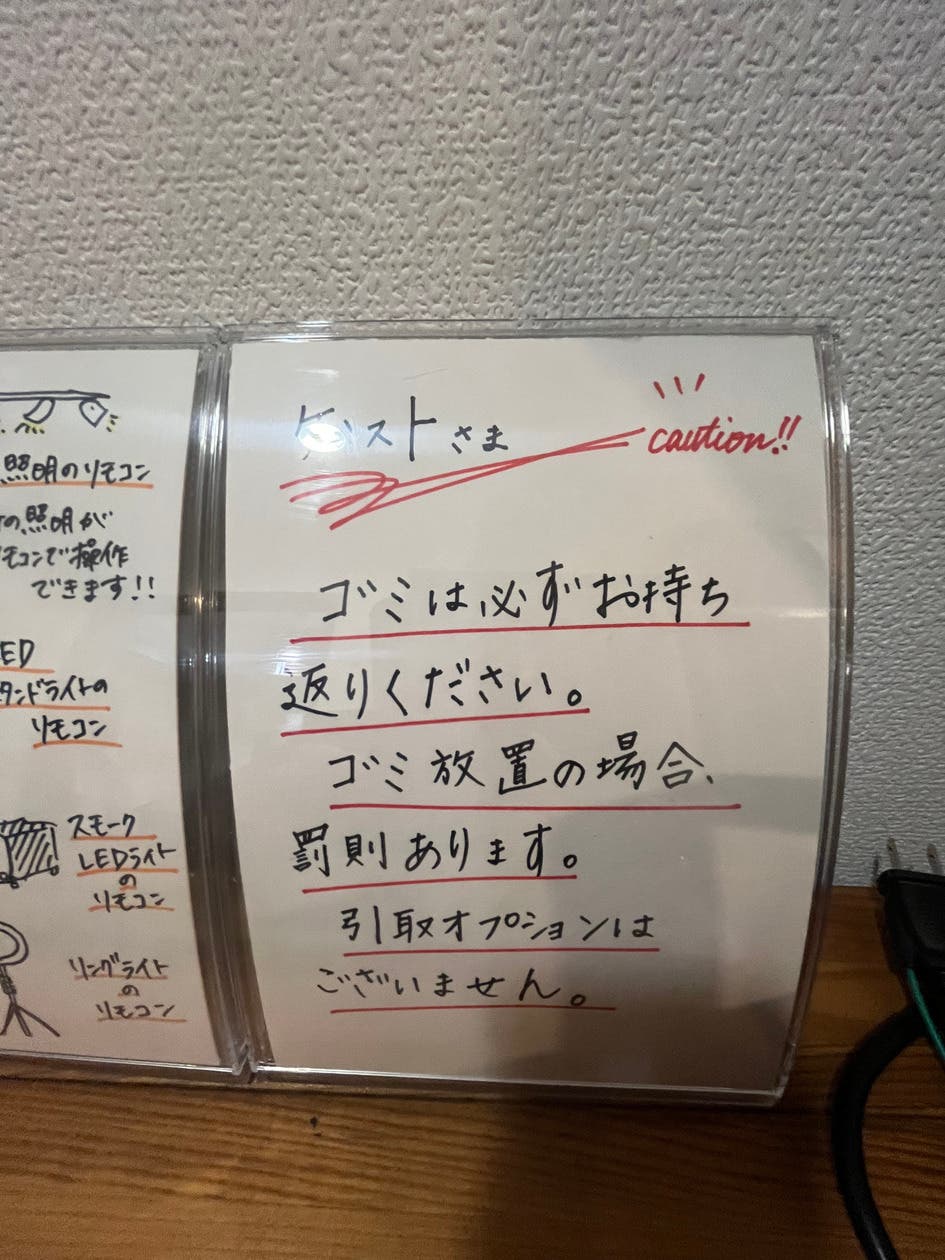 照明のリモコン
の照明が
リモコンで操作
できます!!
ED
タンドライトの
リモコン
スモーク
LEDライト
の
リモコン
リングライト
の
リモコン
ゲストさま
caution!!
ゴミは必ずお持ち
返りください。
ゴミ放置の場合、
罰則あります。
引取オプションは
ございません。